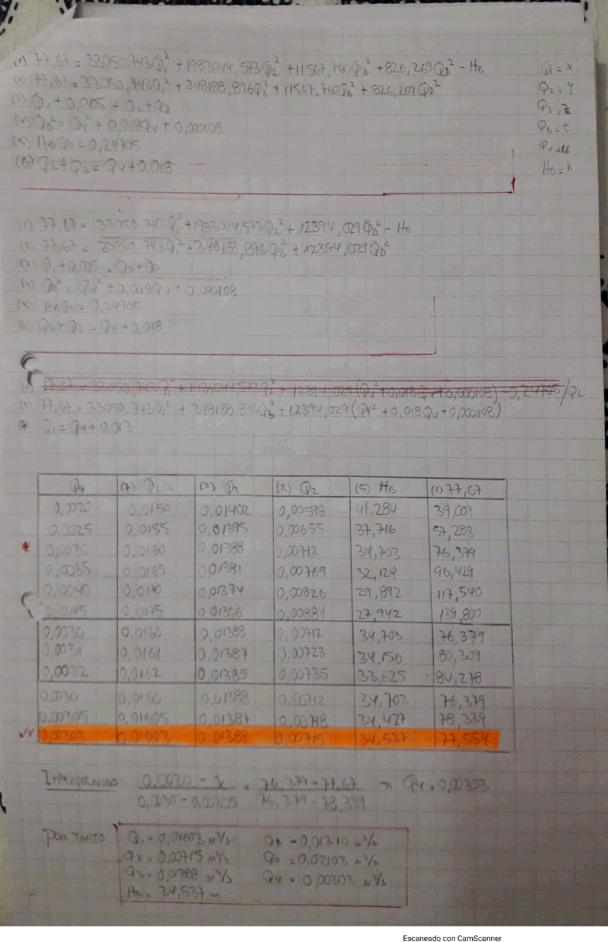 (1) 77,67 = 33050,743Q₁² + 1983044,573Q₂² + 11567,760Q₀² + 826,269Q₀² - HB
(2) 77,67 = 33050,743Q₁² + 348188,896Q₃² + 11567,760Q₀² + 826,269Q₀²
(3) Q₁ + 0,005 = Q₂ + Q₃
(4) Q₀² = Q₄² + 0,018Q₄ + 0,000108
(5) HB Q₂ = 0,24705
(6) Q₂ + Q₃ = Q₄ + 0,018
Q₁ = x
Q₂ = y
Q₃ = z
Q₀ = t
Q₄ = u
HB = h
(1) 77,67 = 33050,743Q₁² + 1983044,573Q₂² + 12394,029Q₀² - HB
(2) 77,67 = 33050,743Q₁² + 348188,896Q₃² + 12394,029Q₀²
(3) Q₁ + 0,005 = Q₂ + Q₃
(4) Q₀² = Q₄² + 0,018Q₄ + 0,000108
(5) HB Q₂ = 0,24705
(6) Q₂ + Q₃ = Q₄ + 0,018
(1) 77,67 = 33050,743Q₁² + 1983044,573Q₂² + 12394,029(Q₄² + 0,018Q₄ + 0,000108) - 0,24705/Q₂
(2) 77,67 = 33050,743Q₁² + 348188,896Q₃² + 12394,029(Q₄² + 0,018Q₄ + 0,000108)
Q₁ = Q₄ + 0,013
Q₄ (7) Q₁ (2) Q₃ (3) Q₂ (5) HB (1) 77,67
0,0020 0,0150 0,01402 0,00598 41,284 39,001
0,0025 0,0155 0,01395 0,00655 37,716 57,288
0,0030 0,0160 0,01388 0,00712 34,703 76,379
0,0035 0,0165 0,01381 0,00769 32,124 96,429
0,0040 0,0170 0,01374 0,00826 29,892 117,540
0,0045 0,0175 0,01366 0,00884 27,942 139,807
0,0030 0,0160 0,01388 0,00712 34,703 76,379
0,0031 0,0161 0,01387 0,00723 34,150 80,309
0,0032 0,0162 0,01385 0,00735 33,625 84,278
0,0030 0,0160 0,01388 0,00712 34,703 76,379
0,00305 0,01605 0,01387 0,00718 34,427 78,339
0,00303 0,01603 0,01388 0,00715 34,537 77,554
Interpolando 0,0030 - x / 0,0030 - 0,00305 = 76,379 - 77,67 / 76,379 - 78,339 → Q₄ = 0,00303
POR TANTO
Q₁ = 0,01603 m³/s - 0,01310 m³/s
Q₂ = 0,00715 m³/s Q₀ = 0,02103 m³/s
Q₃ = 0,01388 m³/s Q₄ = 0,00303 m³/s
HB = 34,537 m
Escaneado con CamScanner